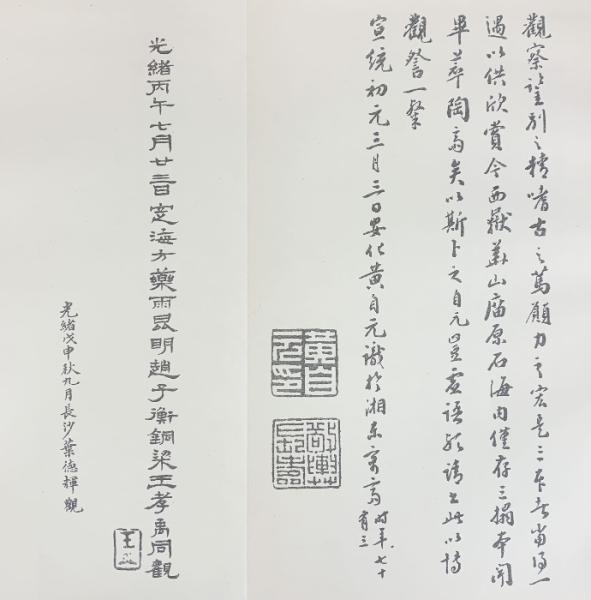 觀察鑒別之精嗜古之篤願力之宏是三者當得一
遇以供欣賞今西嶽華山廟原石海内僅存三搨本聞
畢萃陶齋矣以斯卜之自元豈虛語歟請書此以博
觀詧一粲
宣統初元三月三日安化黃自元識於湘東寓齋時年七十
有三
黃自
元印
光緒丙午七月廿三日定海方藥雨昆明趙子衡銅梁王孝禹同觀
王
光緒戊申秋九月長沙葉德輝觀